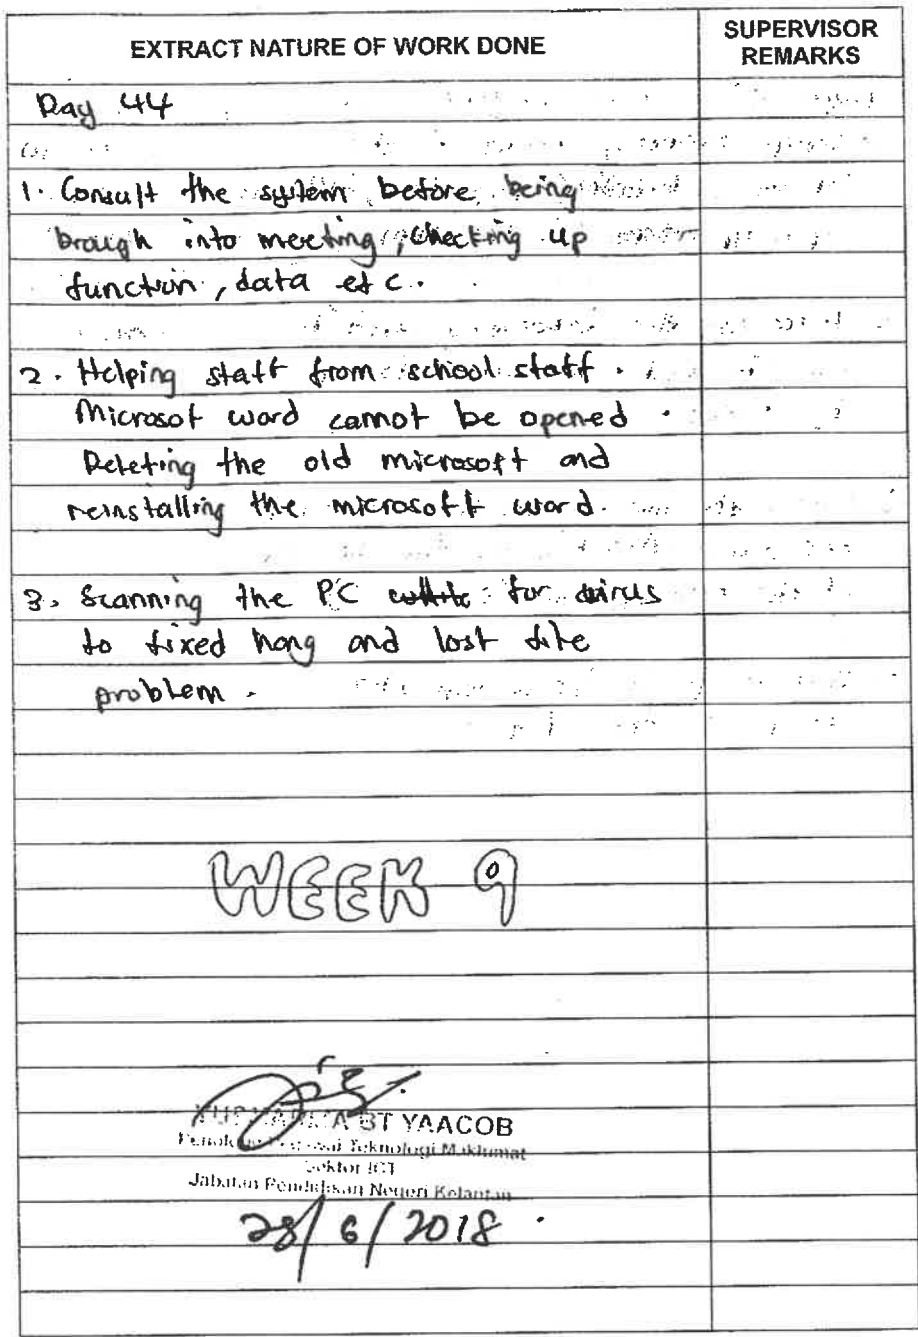 EXTRACT NATURE OF WORK DONE
SUPERVISOR
REMARKS
Day 44
1. Consult the system before being
brough into meeting, checking up
function, data etc.
2. Helping staff from school staff.
Microsot word cannot be opened.
Deleting the old microsoft and
reinstalling the microsoft word.
3. Scanning the PC for virus
to fixed hang and lost file
problem.
WEEK 9
BT YAACOB
Teknologi Maklumat
Sektor ICT
Jabatan Pendidikan Negeri Kelantan
28/6/2018.